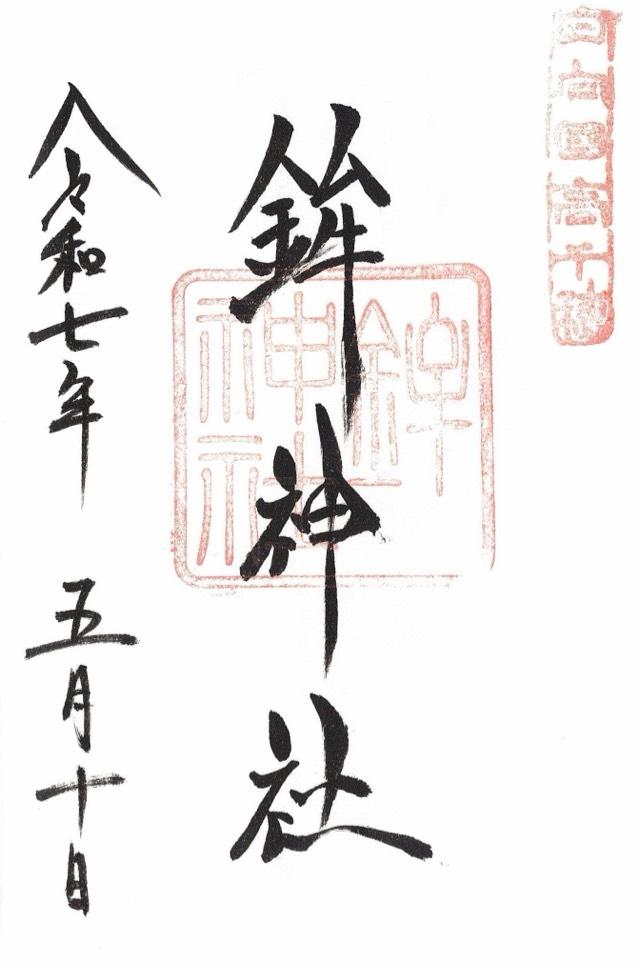 日向国高千穂
鉾神社
鉾神社
令和七年 五月十日